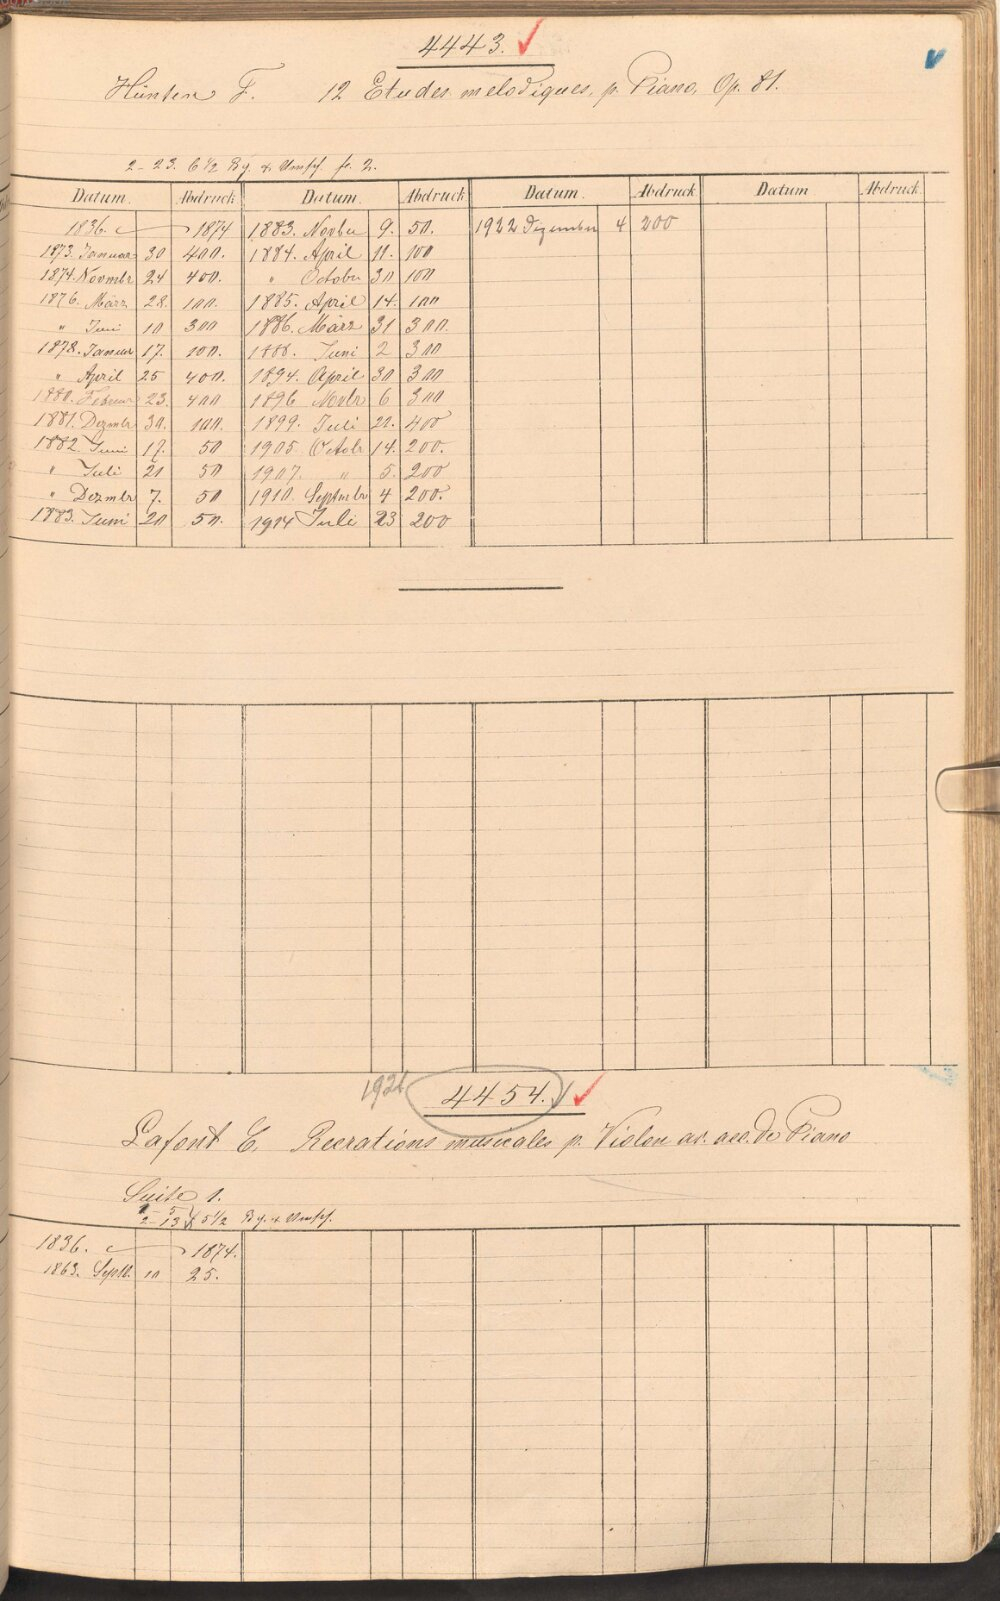 4443.
Hünten F. 12 Etudes melodiques, p. Piano, Op. 81.
2-23. 6 1/2 Bg. & Umschl. fr. 2.
Datum. Abdruck Datum. Abdruck Datum. Abdruck Datum Abdruck
1836. 1874 1883. Novber 9. 50. 1922 Dezember 4 200
1873. Januar 30 400. 1884. April 11. 100
1874. Novmbr 24 400. " October 30 100
1876. März 28. 100. 1885. April 14. 100
" Juni 10 300 1886. März 31 300.
1878. Januar 17. 100. 1888. Juni 2 300
" April 25 400. 1894. April 30 300
1880. Februar 23. 400 1896 Novbr 6 300
1881. Dezmbr 30. 100. 1899. Juli 22. 400
1882. Juni 17. 50 1905 Octobr 14. 200.
" Juli 20 50 1907. " 5. 200
" Dezmbr 7. 50 1910. Septmbr 4 200.
1883. Juni 20 50. 1914 Juli 23 200
4454.
Lafont C. Recrations musicales p. Violon av. acc. de Piano
Suite 1.
2-13 5 1/2 Bg. & Umschl.
1836. 1874.
1863. Septb. 10 25.